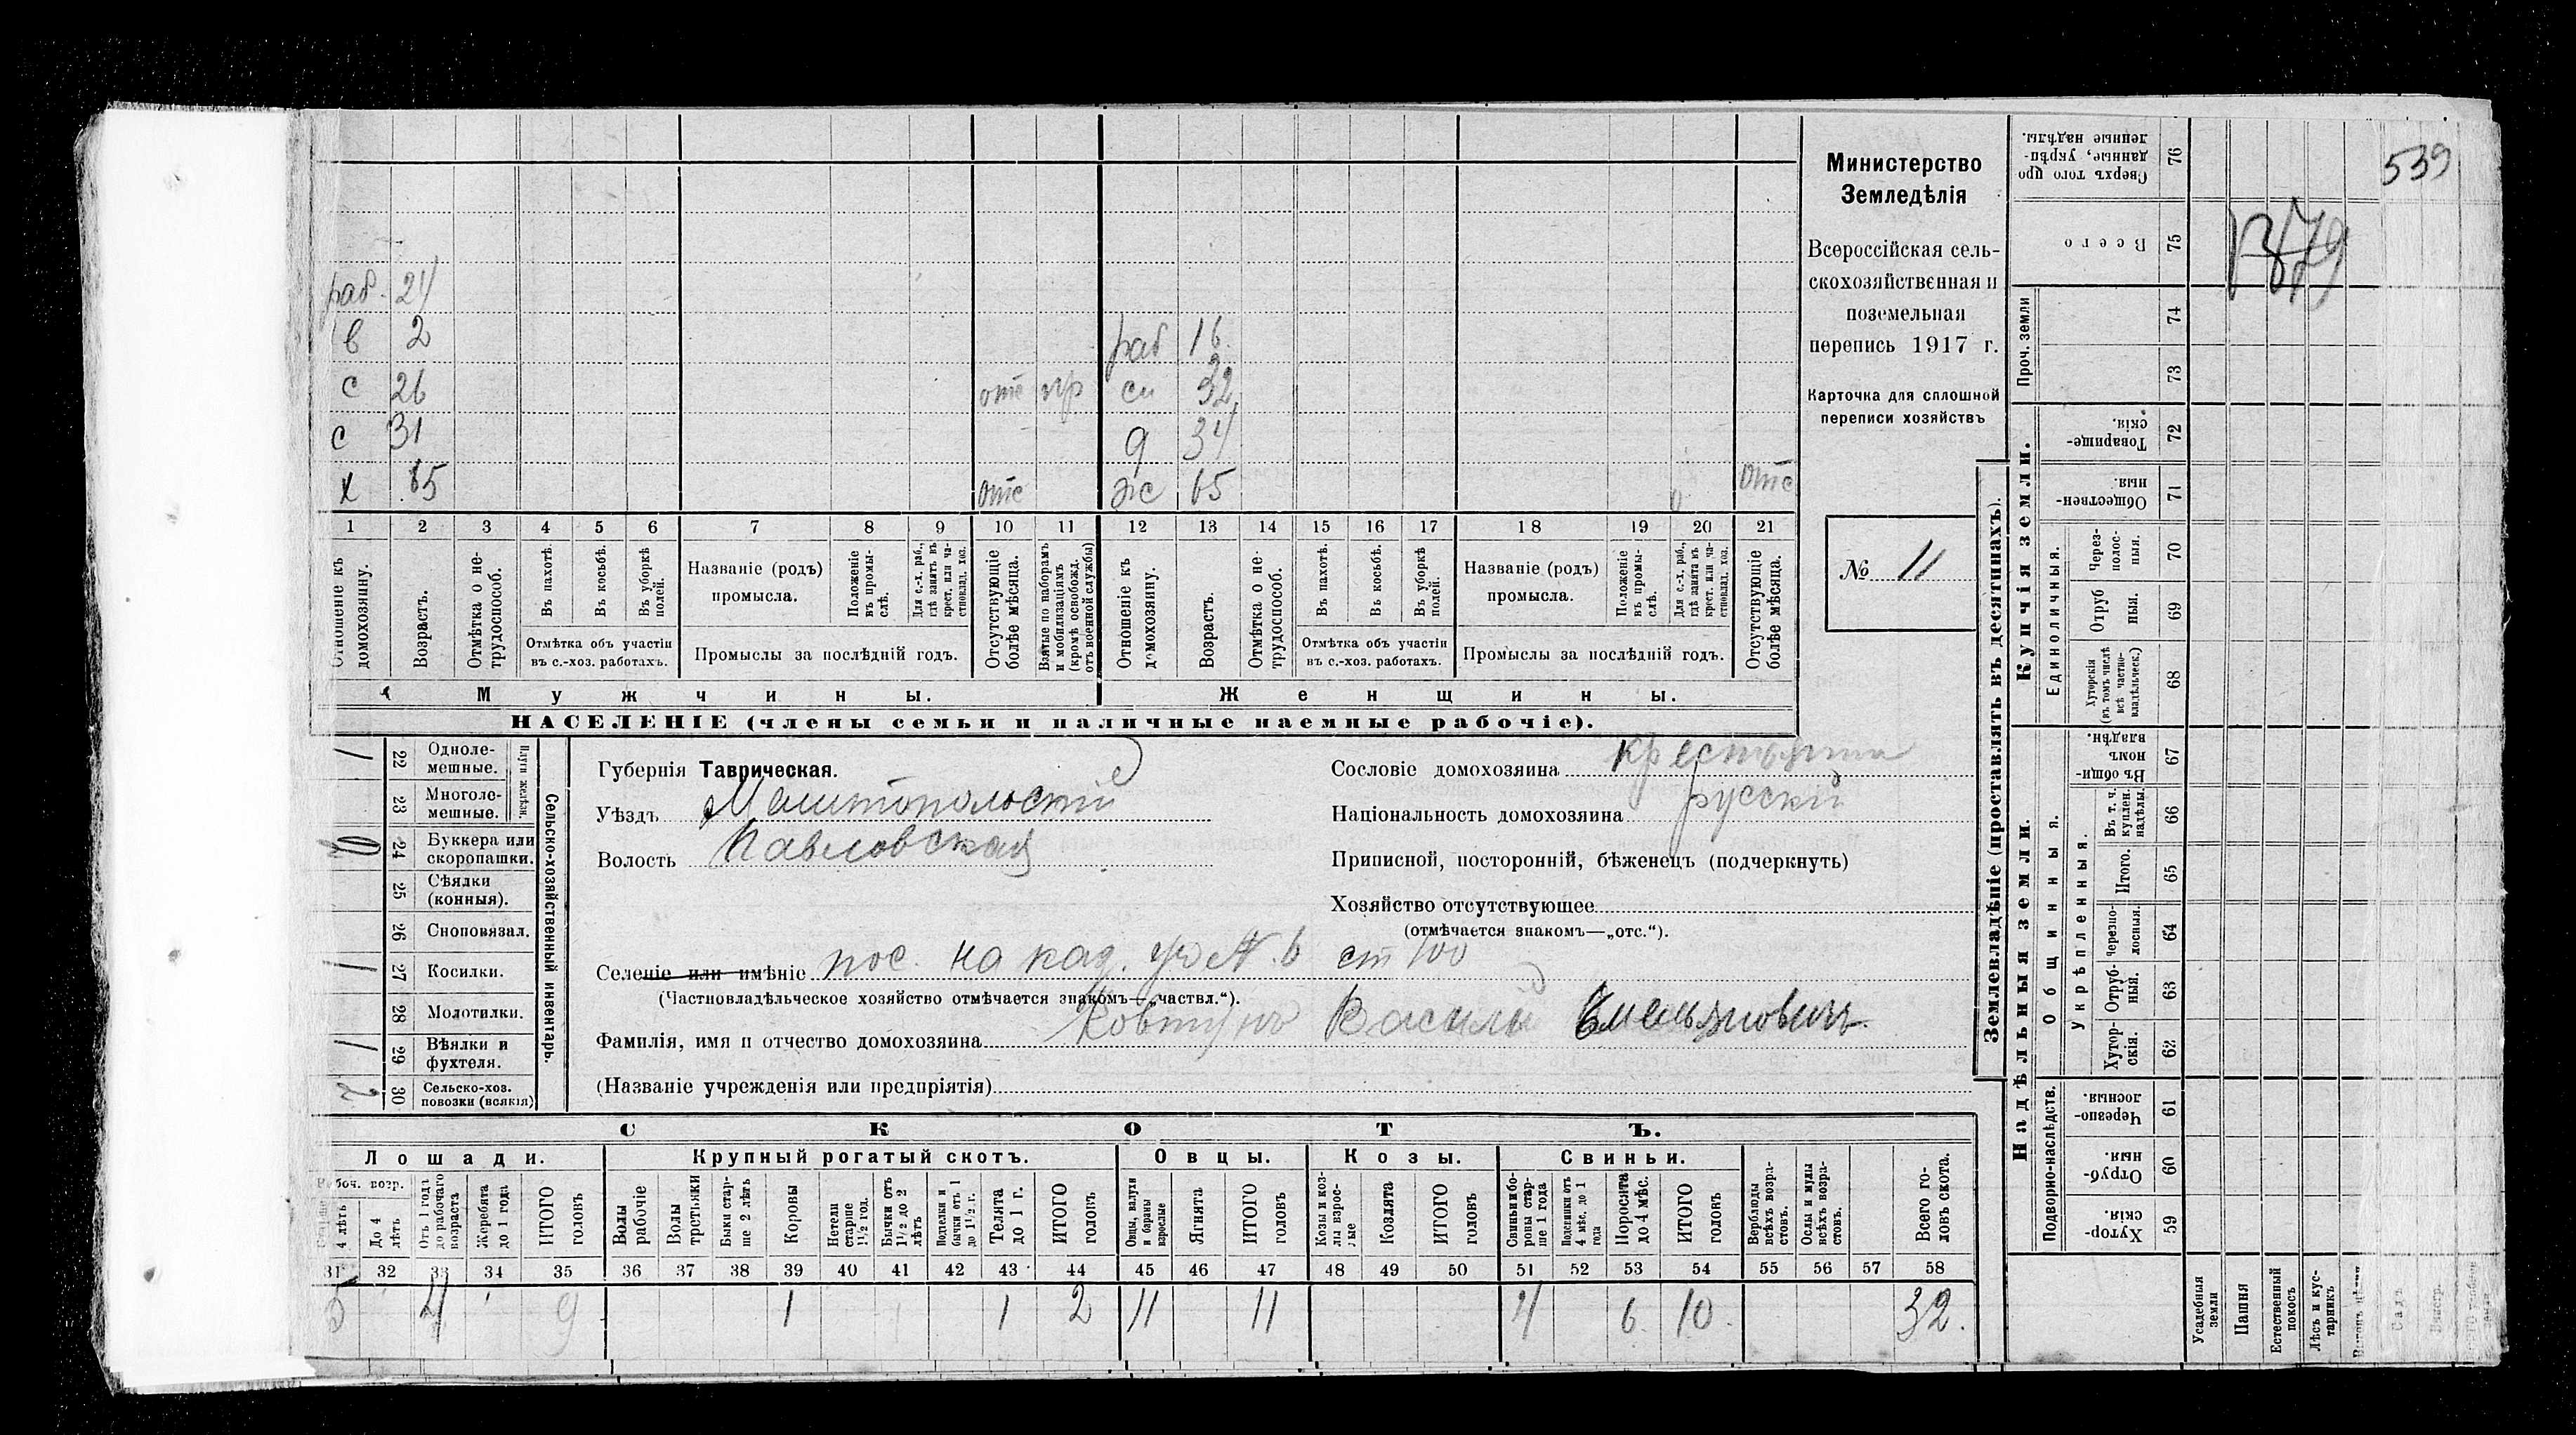 539
1379
Министерство
Земледѣлія
Всероссійская сель-
скохозяйственная и
поземельная
перепись 1917 г.
Карточка для сплошной
переписи хозяйствъ
№ 11
раб. 24
в 2 раб 16
с 26 отс сн 32
с 31 д 34
х 65 отс ж 65 отс
1 2 3 4 5 6 7 8 9 10 11 12 13 14 15 16 17 18 19 20 21
Отношеніе къ домохозяину.
Возрастъ.
Отмѣтка о не-трудоспособ.
Въ пахотѣ.
Въ косьбѣ.
Въ уборкѣ полей.
Отмѣтка объ участіи
въ с.-хоз. работахъ.
Названіе (родъ)
промысла.
Положеніе въ промы-слѣ.
Для с.-х. раб., гдѣ занятъ въ крест. или ча-стновлад. хоз.
Промыслы за послѣдній годъ.
Отсутствующіе болѣе мѣсяца.
Взятые по наборамъ и мобилизаціямъ (кромѣ освобожд. отъ военной службы)
Отношеніе къ домохозяину.
Возрастъ.
Отмѣтка о не-трудоспособ.
Въ пахотѣ.
Въ косьбѣ.
Въ уборкѣ полей.
Отмѣтка объ участіи
въ с.-хоз. работахъ.
Названіе (родъ)
промысла.
Положеніе въ промы-слѣ.
Для с.-х. раб., гдѣ занята въ крест. или ча-стновлад. хоз.
Промыслы за послѣдній годъ.
Отсутствующіе болѣе мѣсяца.
Мужчины. Женщины.
НАСЕЛЕНІЕ (члены семьи и наличные наемные рабочіе).
Сельско-хозяйственный инвентарь.
Плуги желѣзн.
1 22 Одноле-мешные.
23 Многоле-мешные.
24 Буккера или скоропашки.
25 Сѣялки (конныя).
26 Сноповязал.
1 27 Косилки.
28 Молотилки.
1 29 Вѣялки и фухтеля.
2 30 Сельско-хоз. повозки (всякія)
Губернія Таврическая.
Уѣздъ Мелитопольскій
Волость Павловская
Сословіе домохозяина крестьянин
Національность домохозяина русскій
Приписной, посторонній, бѣженецъ (подчеркнуть)
Хозяйство отсутствующее
(отмѣчается знакомъ—„отс.“).
Селеніе или имѣніе пос. на каз. уч № 6 ст 100
(Частновладѣльческое хозяйство отмѣчается знакомъ—„частвл.“).
Фамилія, имя и отчество домохозяина Ковтунъ Василій Емельяновичъ
(Названіе учрежденія или предпріятія)
СКОТЪ.
Лошади. Крупный рогатый скотъ. Овцы. Козы. Свиньи.
Рабоч. возр.
4 лѣтъ
До 4 лѣтъ
Отъ 1 года до рабочаго возраста
Жеребята до 1 года
ИТОГО головъ
Волы рабочіе
Волы гоастьяки
Быки стар-ше 2 лѣтъ
Коровы
Нетели старше 1½ год.
Бычки отъ 1½ до 2 лѣтъ
Подтелки и бычки отъ 1 до 1½ г.
Телята до 1 г.
ИТОГО головъ
Овцы, валухи и бараны взрослые
Ягнята
ИТОГО головъ
Козы и коз-лы взрос-лые
Козлята
ИТОГО головъ
Свиньи и бо-ровы стар-ше 1 года
Подсвинки отъ 4 мѣс. до 1 года
Поросята до 4 мѣс.
ИТОГО головъ
Верблюды всѣхъ возра-стовъ.
Ослы и мулы всѣхъ возра-стовъ.
Всего го-ловъ скота.
31 32 33 34 35 36 37 38 39 40 41 42 43 44 45 46 47 48 49 50 51 52 53 54 55 56 57 58
5 4 9 1 1 2 11 11 4 6 10 32.
Землевладѣніе (проставлять въ десятинахъ).
Надѣльныя земли. Купчія земли. Проч. земли
Подворно-наслѣдств.
Общинныя.
Укрѣпленныя.
Единоличныя.
Сверхъ того про данные, укрѣп-ленные надѣлы. 76
Всего 75
74
73
Товарище-скія. 72
Обществен-ныя. 71
Через-полос-ныя. 70
Отруб ныя. 69
Хуторскія (въ томъ числѣ всѣ частно-владѣльческ.) 68
Въ общи-номъ владѣн. 67
Въ т. ч. куплен. надѣлы. 66
Итого. 65
Черезпо-лосныя. 64
Отруб-ныя. 63
Хутор-скія. 62
Черезпо-лосныя. 61
Отруб-ныя. 60
Хутор-скія. 59
Усадебныя земли
Пашня
Естественный покосъ
Лѣсъ и кус-тарникъ